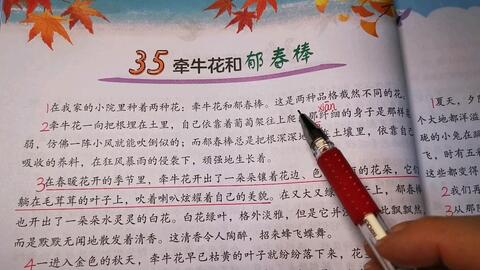 35 牵牛花和郁春棒
1在我家的小院里种着两种花：牵牛花和郁春棒。这是两种品格截然不同的花。
xiān
2牵牛花一向把根埋在土里，自己依靠着葡萄架往上爬，那纤细的身子是那样
弱，仿佛一阵小风就能吹倒似的；而郁春棒总是把根深深 土壤里，依靠自己
吸收的养料，在狂风暴雨的侵袭下，顽强地生长着。
3在春暖花开的季节里，牵牛花开出了一朵朵镶着花边、色 的花朵，它们
躺在毛茸茸的叶子上，吹着喇叭炫耀着自己的美貌。在又大又绿 子上，郁春
也开出了一朵朵水灵灵的白花。白花绿叶，格外淡雅，但是它并 此飘飘然
而是默默无闻地散发着清香。这清香令人陶醉，招来蜂飞蝶舞。
4一进入金色的秋天，牵牛花早已枯黄的叶子就纷纷落下来，花
1夏天，夕
个大地都
天的小兔
飞，时有五
这些都变得
2我们再
3从那